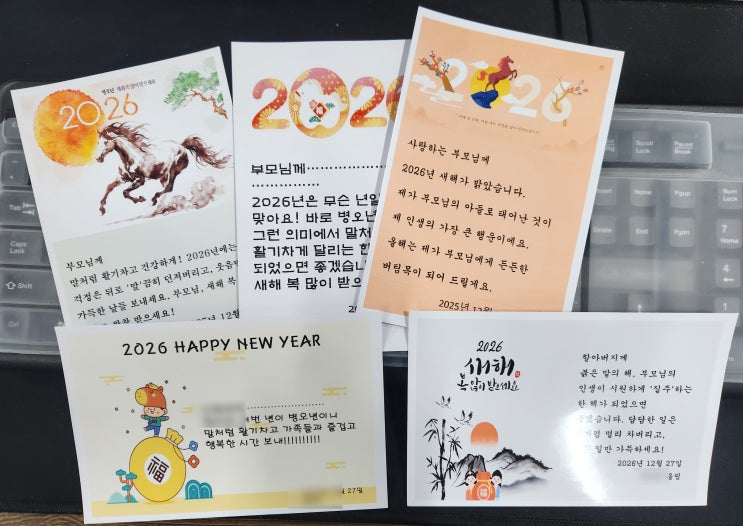 2026
부모님께
말처럼 활기차고 건강하게! 2026년에는
걱정은 뒤로 '말'끔히 던져버리고, 웃음만
가득한 날들 보내세요. 부모님, 새해 복
받으세요!
2025년 12월
2026
부모님께
2026년은 무슨 년일
맞아요! 바로 병오년
그런 의미에서 말처
활기차게 달리는 한
되었으면 좋겠습니
새해 복 많이 받으
2026
사랑하는 부모님께
2026년 새해가 밝았습니다.
제가 부모님의 아들로 태어난 것이
제 인생의 가장 큰 행운이에요.
올해는 제가 부모님에게 든든한
버팀목이 되어 드릴게요.
2025년 12월
2026 HAPPY NEW YEAR
이번 년이 병오년이니
말처럼 활기차고 가족들과 즐겁고
행복한 시간 보내!!!!!!!!!!
福
27일
2026
새해
복 많이 받으세요
할아버지께
붉은 말의 해, 부모님의
인생이 시원하게 '질주'하는
한 해가 되었으면
좋겠습니다. 답답한 일은
말처럼 멀리 차버리고,
일만 가득하세요!
2026년 12월 27일
올림
Scroll
Lock
Pause
Break
Home
PgUp
End
PgDn
Num
Lock
Home
End
Tab
Caps
Lock
Shift
Ctrl